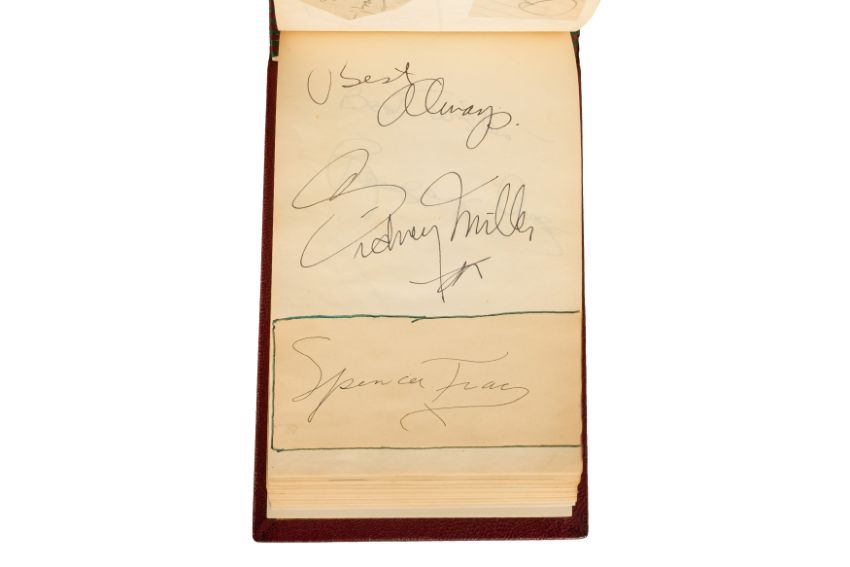 Best
Always.
Sidney Miller
Spencer Tracy